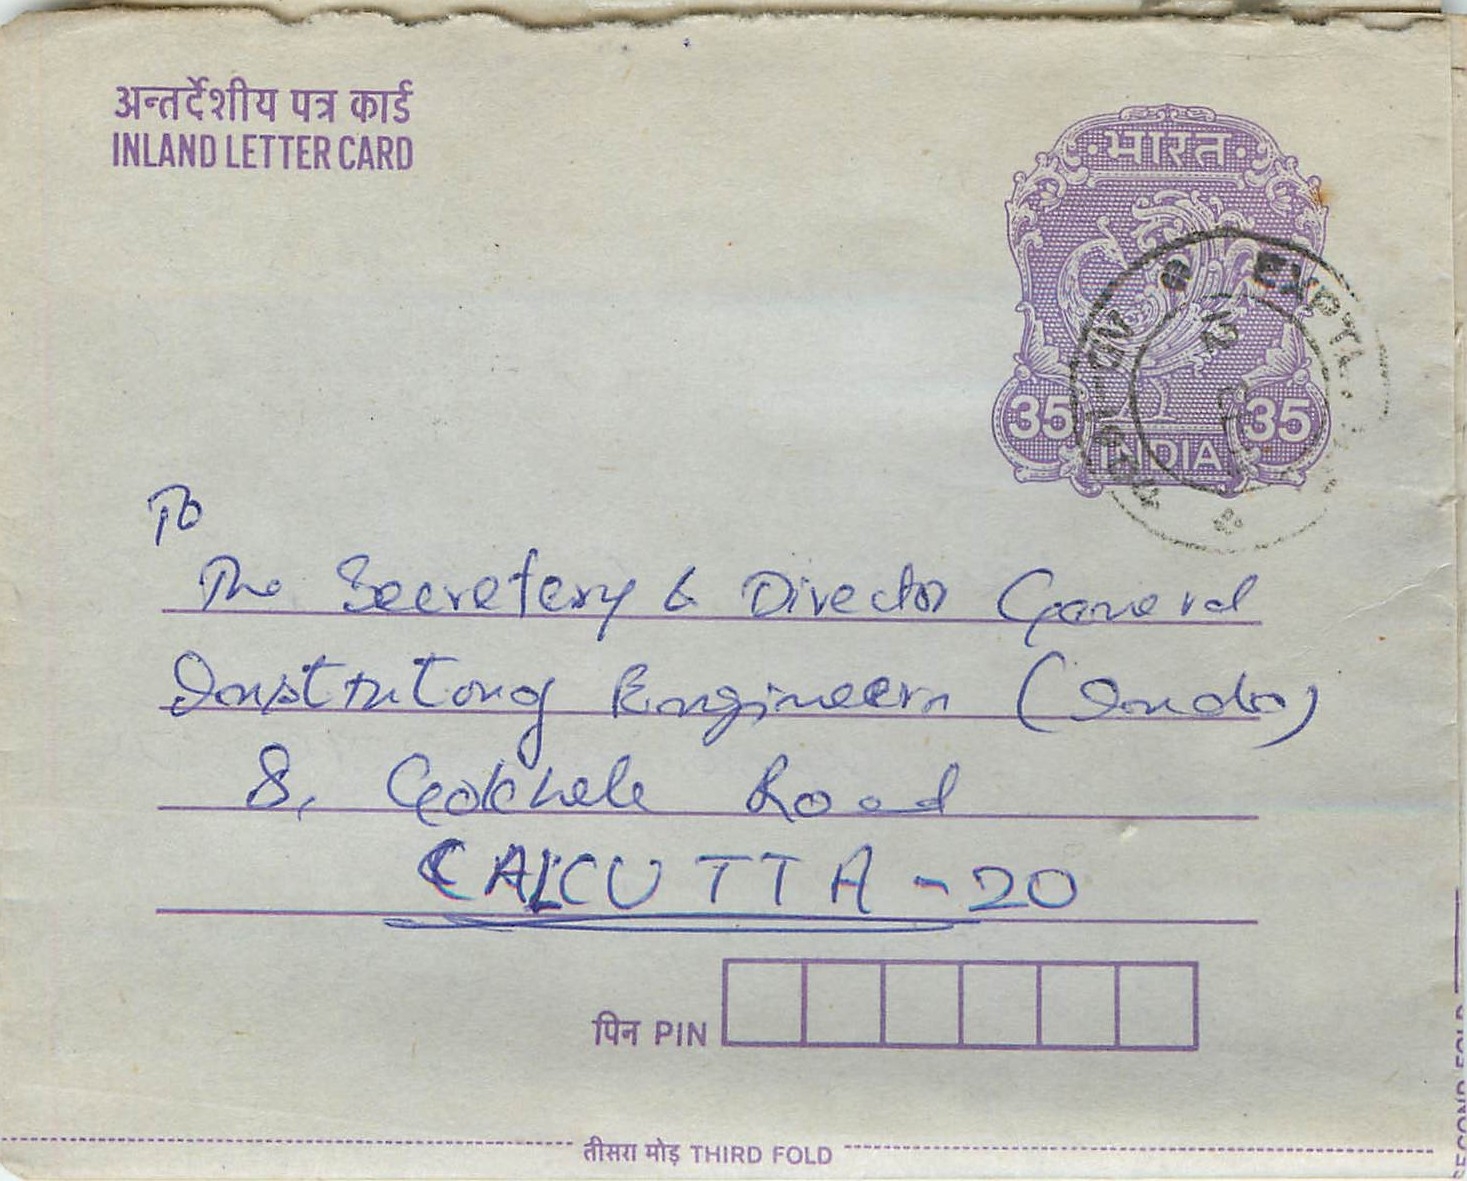 अन्तर्देशीय पत्र कार्ड
INLAND LETTER CARD
भारत
35 35
INDIA
EXPTL.
To
The Secretary & Director General
Institution of Engineers (India)
8, Gokhale Road
CALCUTTA - 20
पिन PIN
तीसरा मोड़ THIRD FOLD
SECOND FOLD